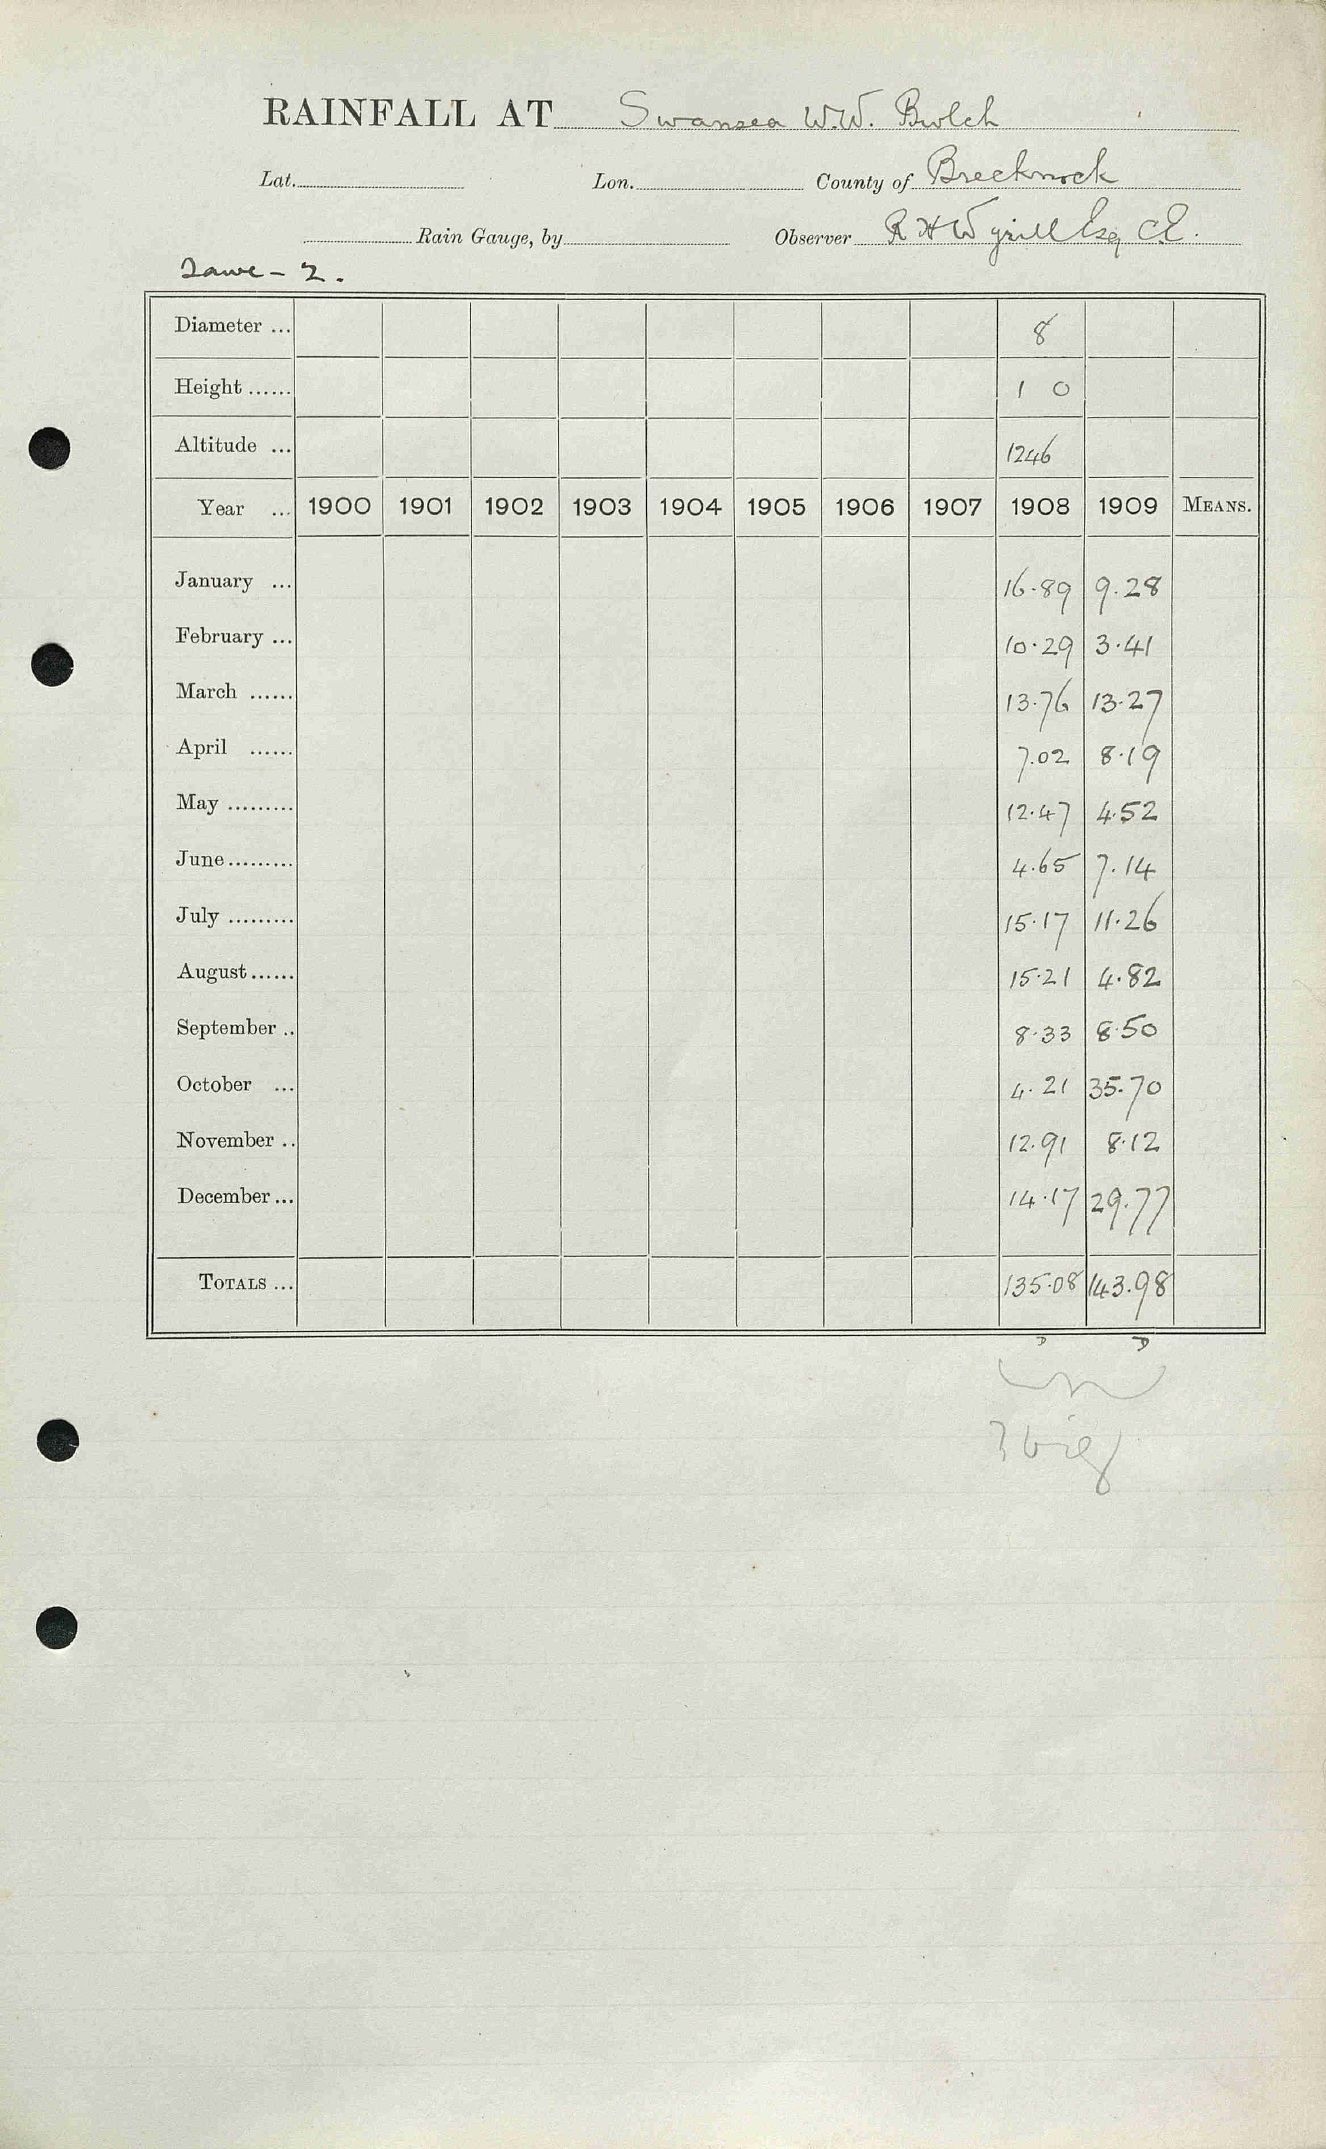 RAINFALL AT Swansea W.W. Bwlch
Lat. Lon. County of Brecknock
Rain Gauge, by Observer R H Wyrill Esq C.E.
Tawe - 2.
Diameter ... 8
Height ...... 1 0
Altitude ... 1246
Year ... 1900 1901 1902 1903 1904 1905 1906 1907 1908 1909 MEANS.
January ... 16.89 9.28
February ... 10.29 3.41
March ...... 13.76 13.27
April ...... 7.02 8.19
May ......... 12.47 4.52
June ......... 4.65 7.14
July ......... 15.17 11.26
August ...... 15.21 4.82
September .. 8.33 8.50
October ... 4.21 35.70
November .. 12.91 8.12
December ... 14.17 29.77
TOTALS ... 135.08 143.98
D D
? big